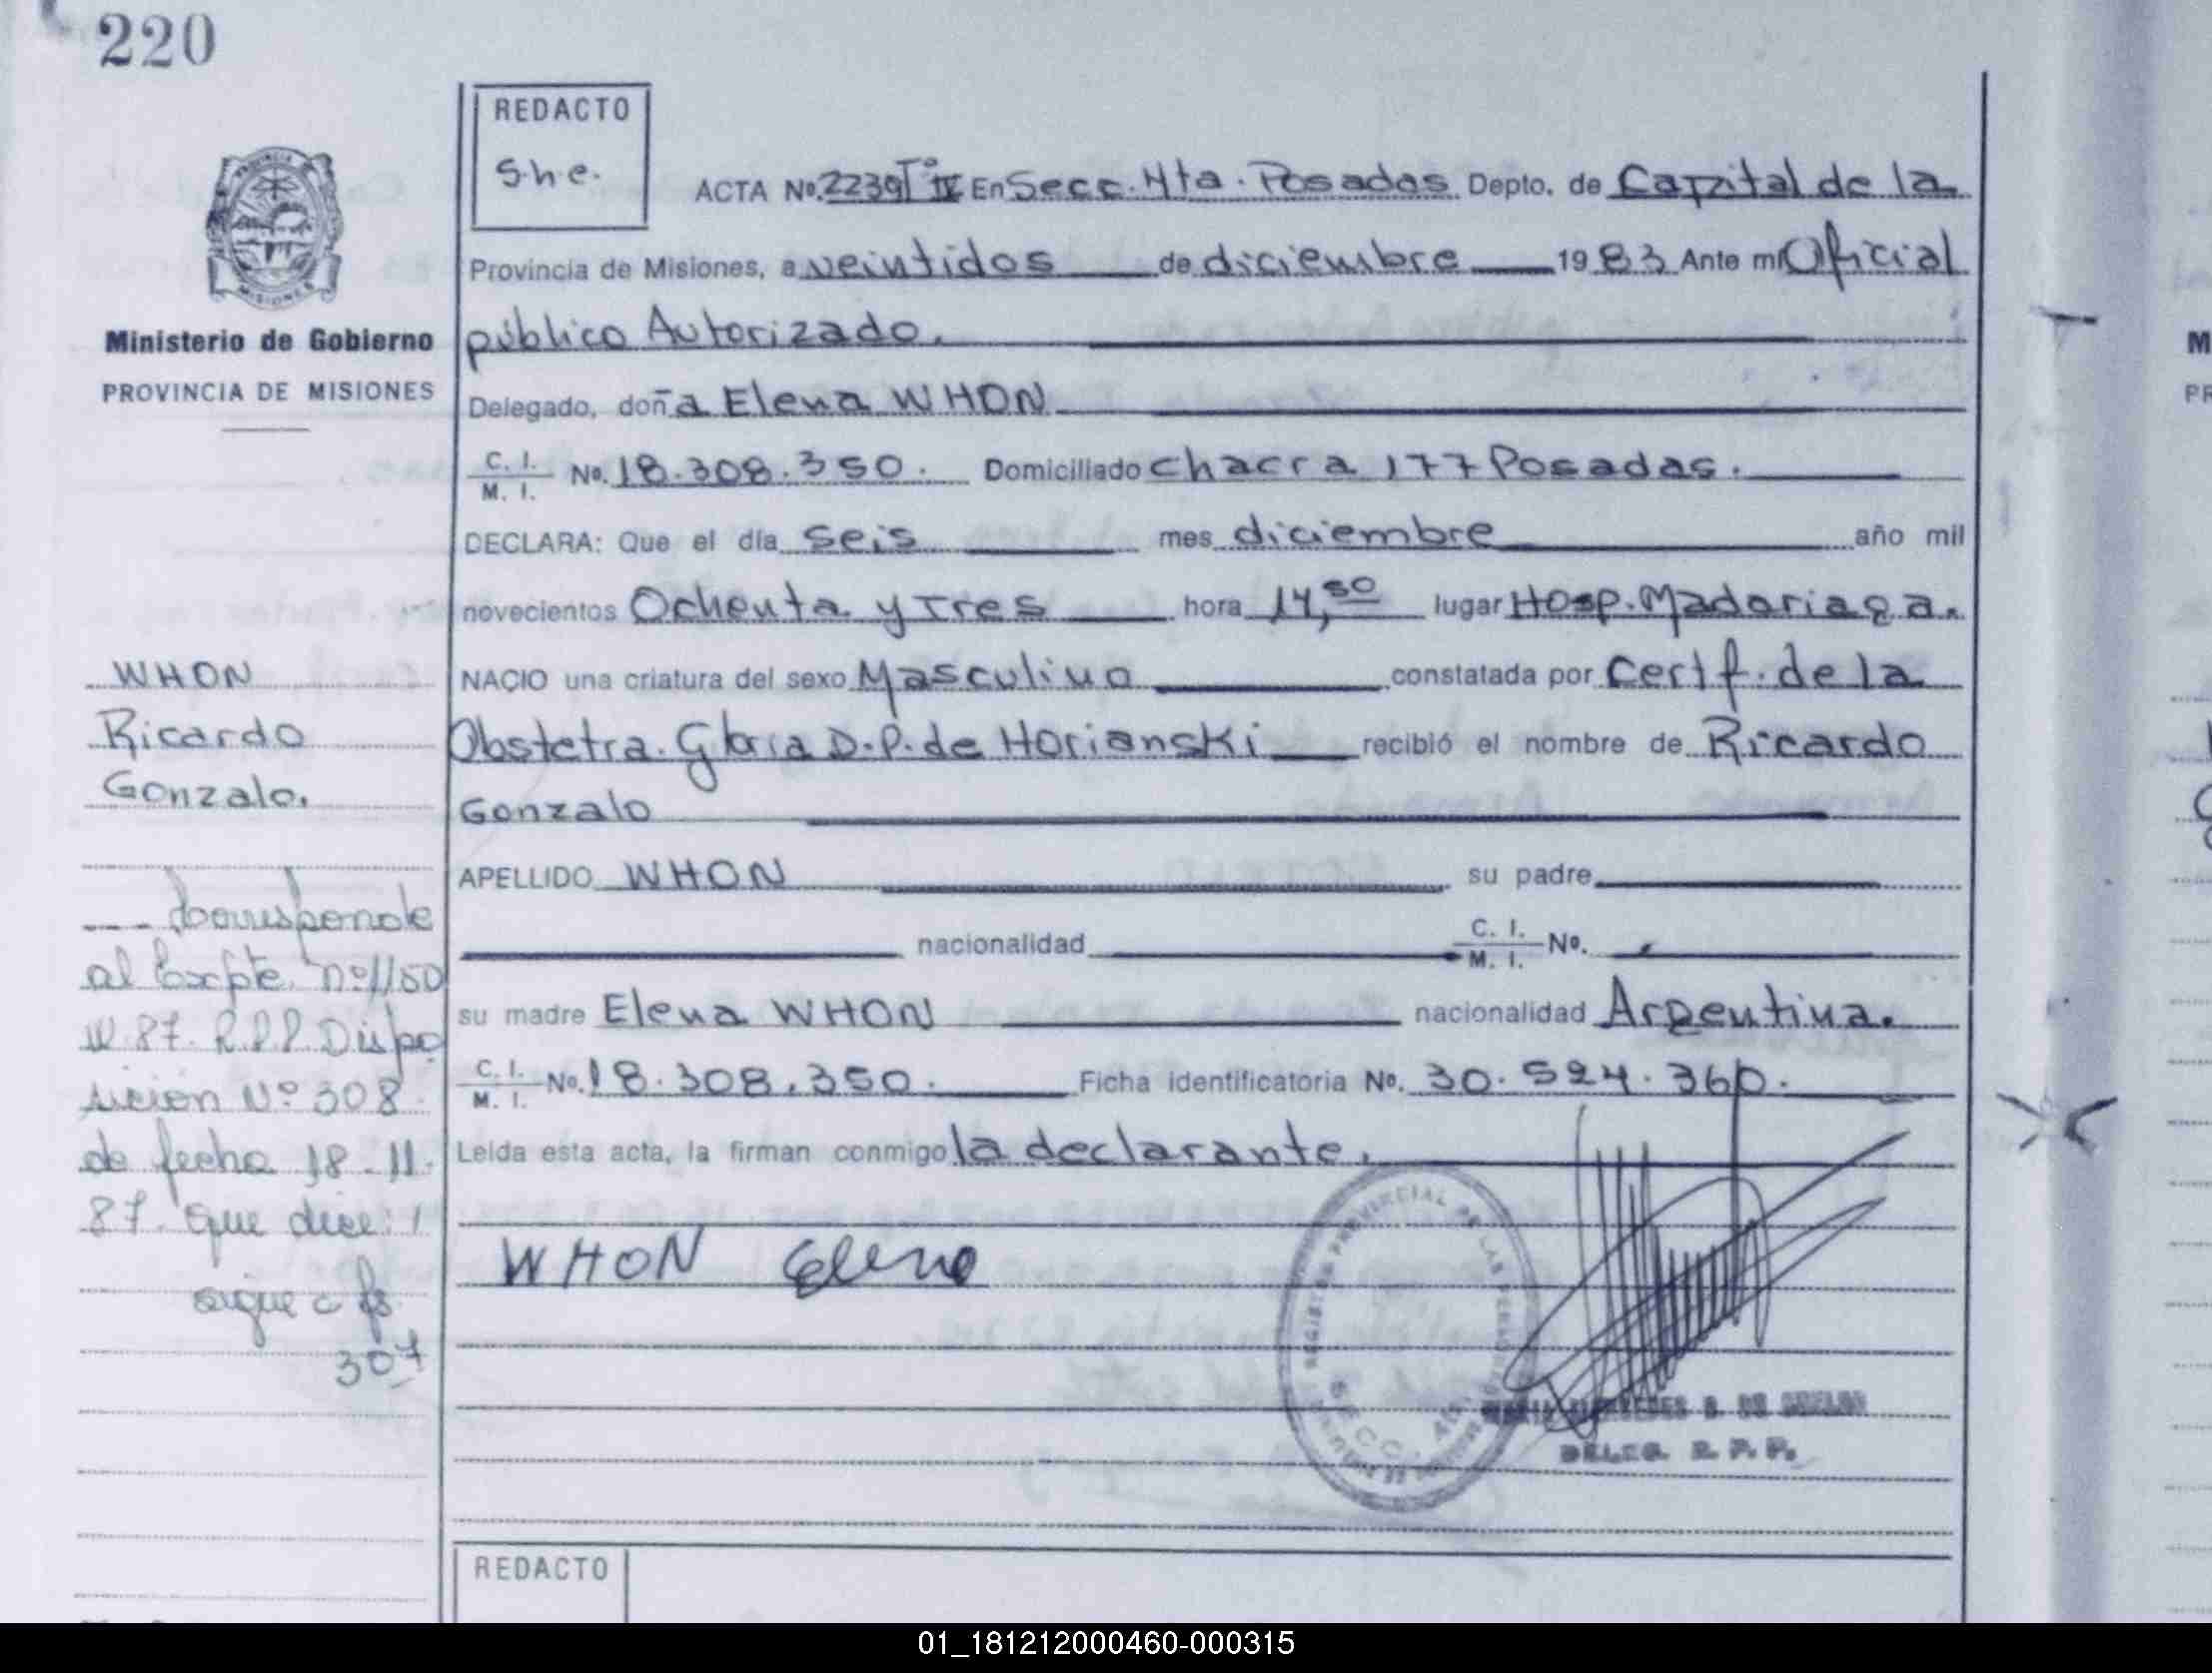 220
REDACTO
S.h.e.
ACTA No. 2239 Tº IV En Secc. 4ta. Posadas Depto. de Capital de la
Provincia de Misiones, a veintidos de diciembre 1983 Ante mi Oficial
público Autorizado.
Delegado, doña Elena WHON
C. I. / M. I. No. 18.308.350. Domiciliado chacra 177 Posadas.
DECLARA: Que el día seis mes diciembre año mil
novecientos Ochenta y Tres hora 14,50 lugar Hosp. Madariaga.
NACIO una criatura del sexo Masculino constatada por Certf. de la
Obstetra. Gloria D.P. de Horianski recibió el nombre de Ricardo
Gonzalo
APELLIDO WHON su padre
nacionalidad C. I. / M. I. No.
su madre Elena WHON nacionalidad Argentina.
C. I. / M. I. No. 18.308.350. Ficha identificatoria No. 30.524.360.
Leída esta acta, la firman conmigo la declarante.
WHON Elena
REGISTRO PROVINCIAL DE LAS PERSONAS
SECC. 4ta
DELEG. R. P. P.
PROVINCIA
MISIONES
Ministerio de Gobierno
PROVINCIA DE MISIONES
WHON
Ricardo
Gonzalo.
--- Corresponde
al Expte. nº 1150
W. 87. R.P.P. Dispo
sición Nº 308
de fecha 18-11-
87. que dice:
sigue a fs
307
REDACTO
01_181212000460-000315